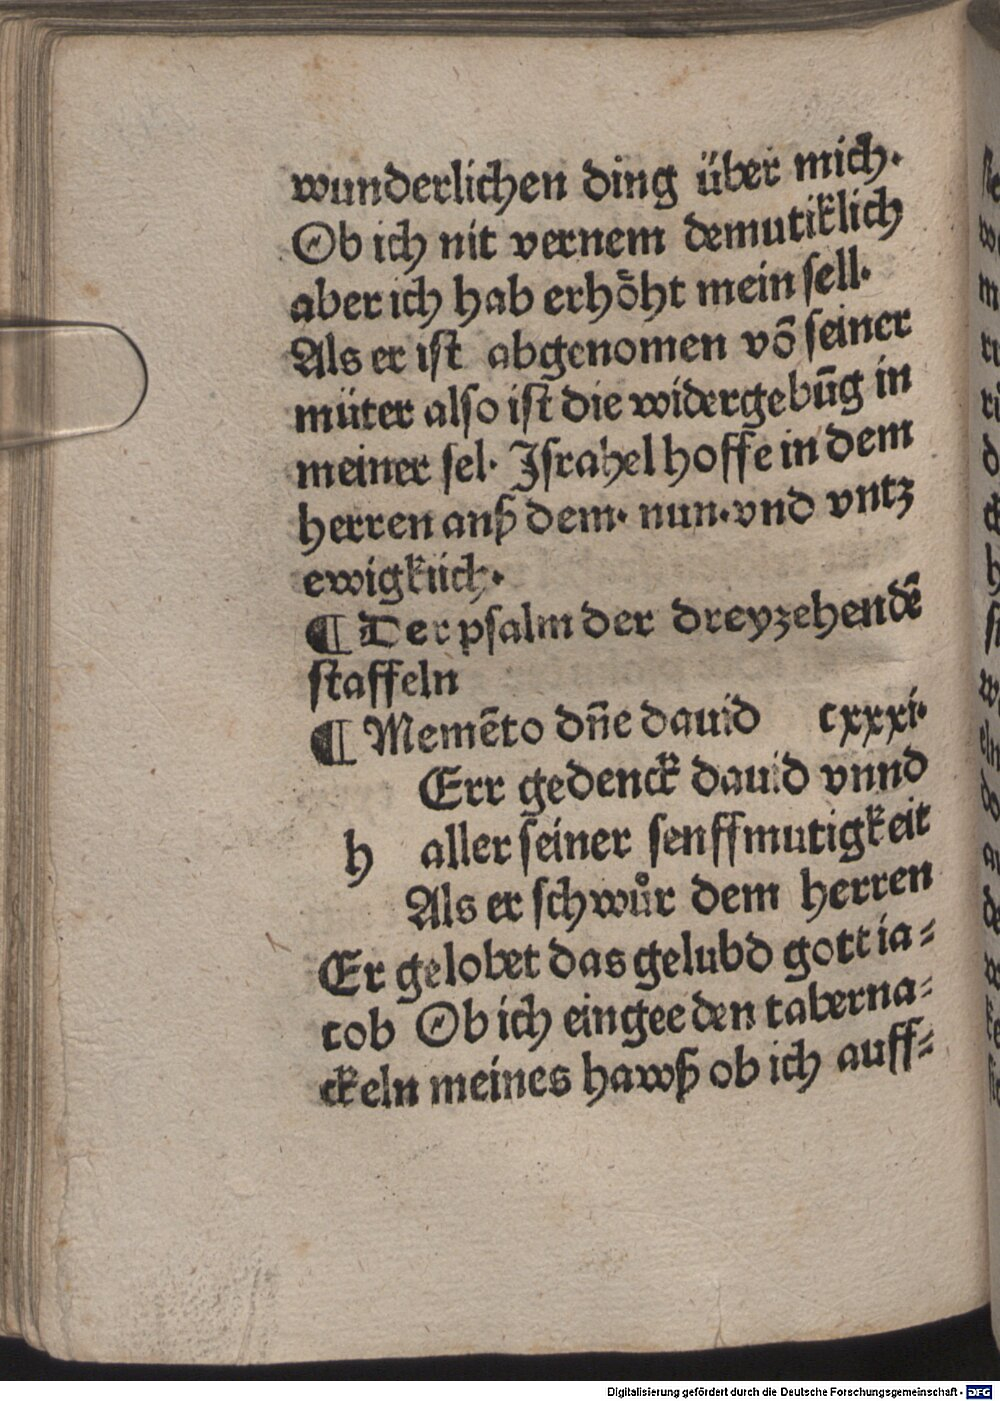 wunderlichen ding über mich.
Ob ich nit vernem demutiklich
aber ich hab erhöht mein sell.
Als er ist abgenomen võ seiner
müter also ist die widergebūg in
meiner sel. Israhel hoffe in dem
herren anß dem. nun. vnd vntz
ewigklich.
¶ Der psalm der dreyzehendē
staffeln
¶ Memēto dn̄e dauid cxxxi.
Err gedenck dauid vnnd
h aller seiner senffmutigkeit
Als er schwůr dem herren
Er gelobet das gelubd gott ia⸗
cob Ob ich eingee den taberna⸗
ckeln meines hawß ob ich auff⸗
Digitalisierung gefördert durch die Deutsche Forschungsgemeinschaft - DFG